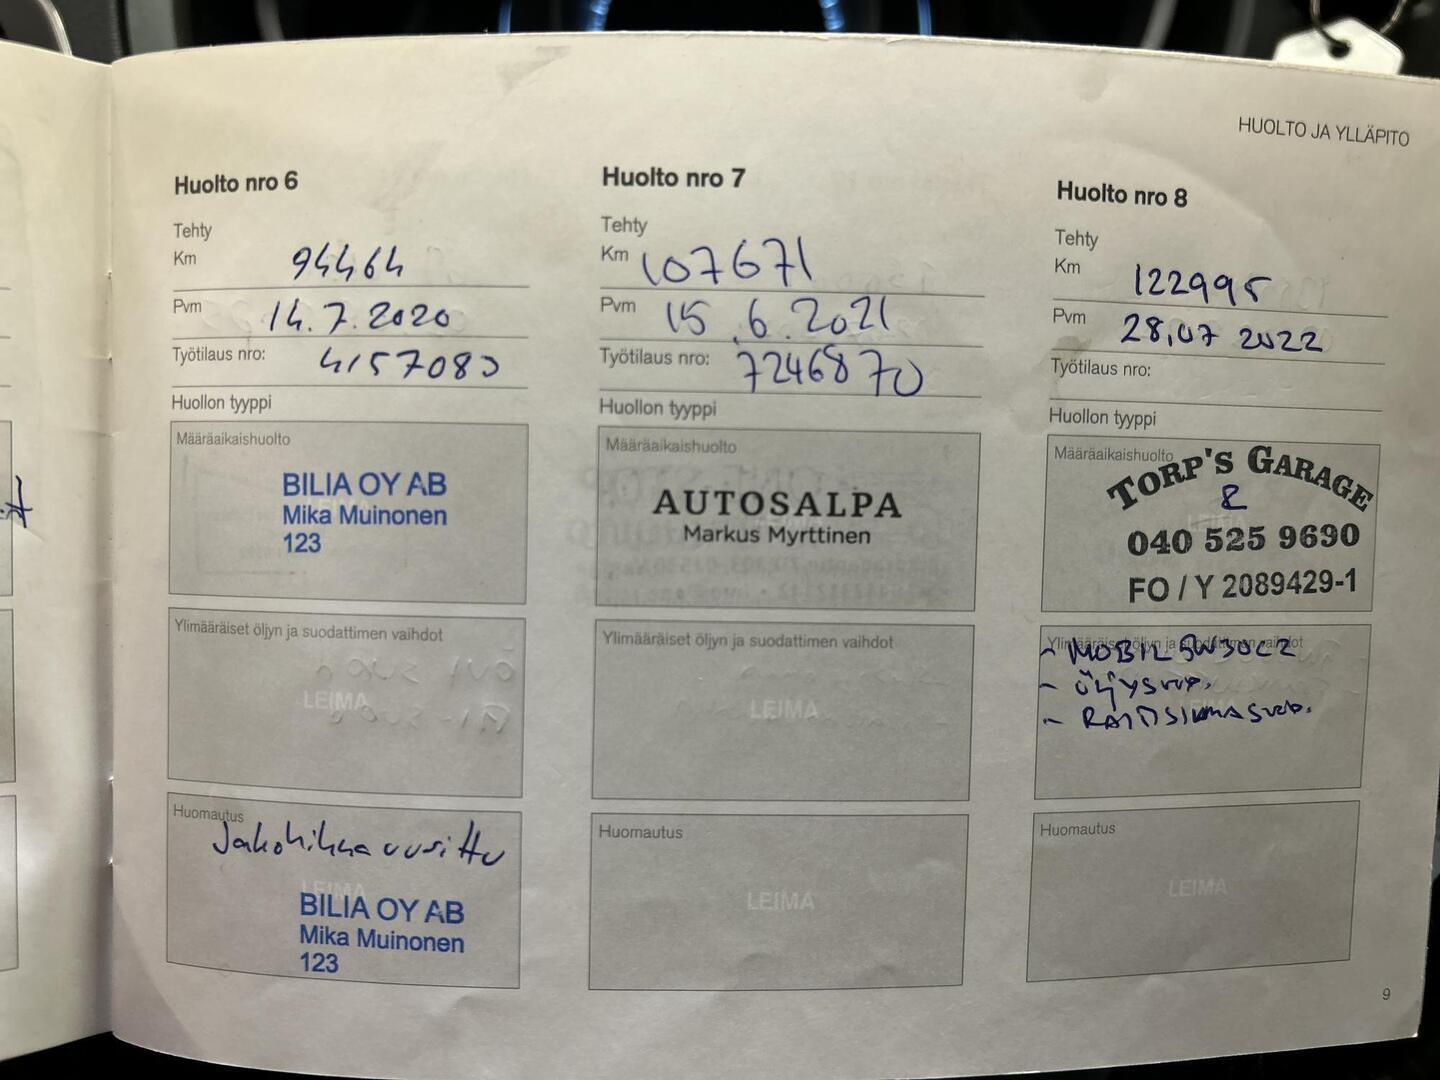 HUOLTO JA YLLÄPITO
Huolto nro 6
Tehty
Km 94464
Pvm 14.7.2020
Työtilaus nro: 4157083
Huollon tyyppi
Määräaikaishuolto
BILIA OY AB
Mika Muinonen
123
Ylimääräiset öljyn ja suodattimen vaihdot
LEIMA
Huomautus
Jakohihna uusittu
LEIMA
BILIA OY AB
Mika Muinonen
123
Huolto nro 7
Tehty
Km 107671
Pvm 15.6.2021
Työtilaus nro: 7246870
Huollon tyyppi
Määräaikaishuolto
AUTOSALPA
Markus Myrttinen
Ylimääräiset öljyn ja suodattimen vaihdot
LEIMA
Huomautus
LEIMA
Huolto nro 8
Tehty
Km 122995
Pvm 28.07 2022
Työtilaus nro:
Huollon tyyppi
Määräaikaishuolto
TORP'S GARAGE
040 525 9690
FO / Y 2089429-1
Ylimääräiset öljyn ja suodattimen vaihdot
- MOBIL 5W30C2
- ÖLJYSUOD.
LEIMA
- RAITISILMASUOD.
Huomautus
LEIMA
9